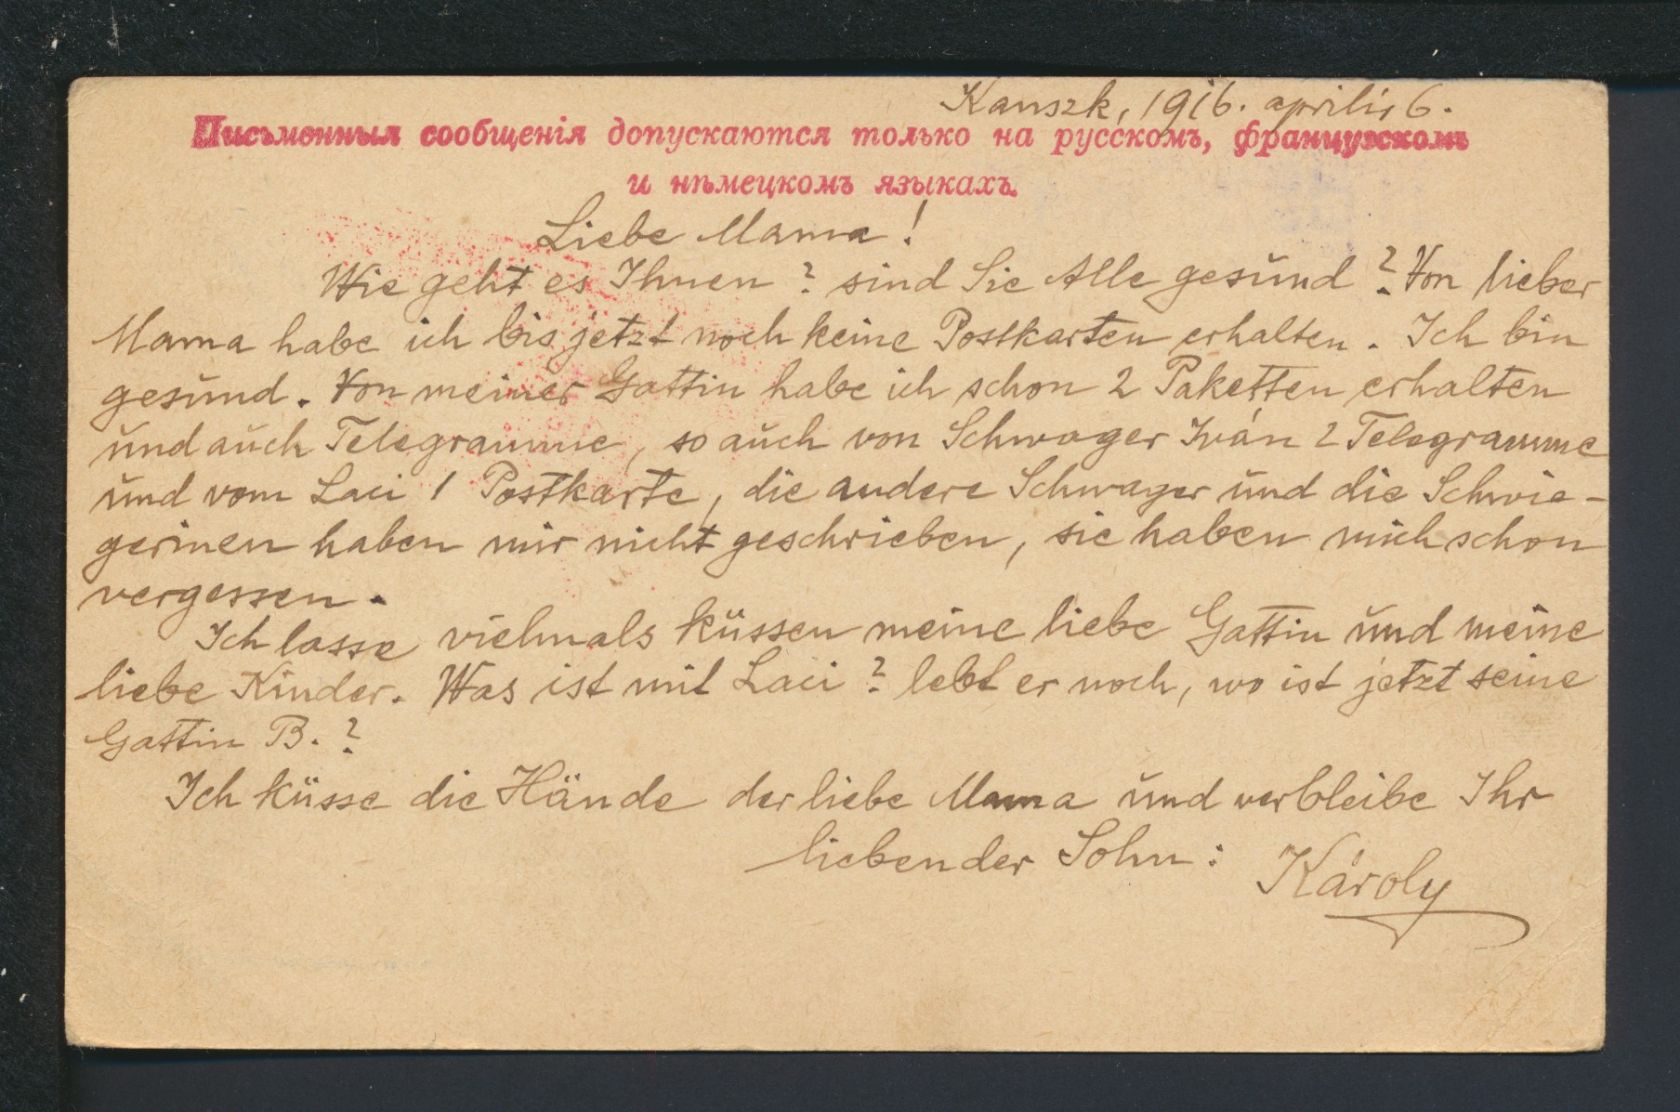 Kanszk, 1916. április 6.
Письменныя сообщенія допускаются только на русскомъ, французскомъ
и нѣмецкомъ языкахъ.
Liebe Mama!
Wie geht es Ihnen? sind Sie Alle gesund? Von lieber
Mama habe ich bis jetzt noch keine Postkarten erhalten. Ich bin
gesund. Von meiner Gattin habe ich schon 2 Paketten erhalten
und auch Telegramme, so auch von Schwager Iván 2 Telegramme
und vom Laci 1 Postkarte, die andere Schwager und die Schwie-
gerinen haben mir nicht geschrieben, sie haben mich schon
vergessen.
Ich lasse vielmals küssen meine liebe Gattin und meine
liebe Kinder. Was ist mit Laci? lebt er noch, wo ist jetzt seine
Gattin B.?
Ich küsse die Hände der liebe Mama und verbleibe Ihr
liebender Sohn: Károly